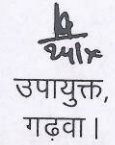 उपायुक्त,
गढ़वा।